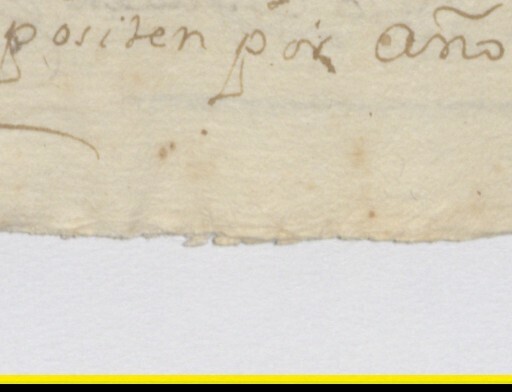 positen por año